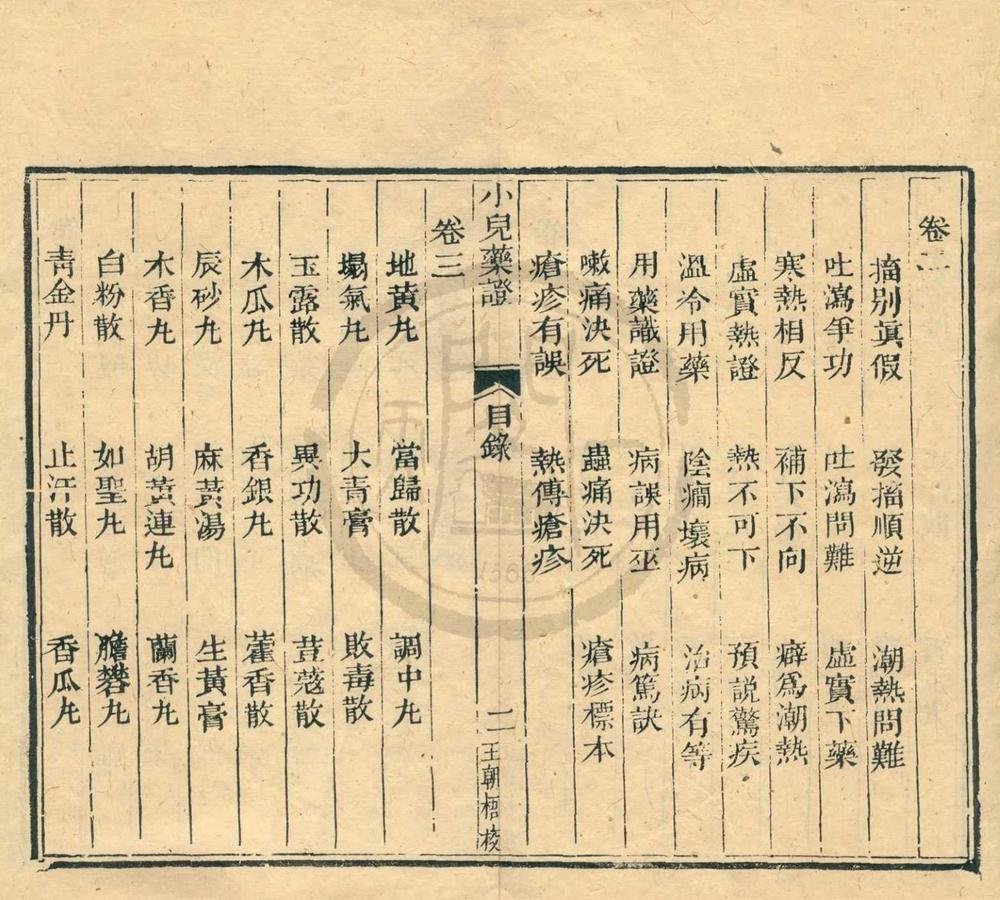 卷二
搐別眞假 發搐順逆 潮熱問難
吐瀉爭功 吐瀉問難 虛實下藥
寒熱相反 補下不向 癖爲潮熱
虛實熱證 熱不可下 預説驚疾
溫冷用藥 陰癇壞病 治病有等
用藥識證 病誤用巫 病篤訣
嗽痛決死 蟲痛決死 瘡疹標本
瘡疹有誤 熱傳瘡疹
小兒藥證 目錄 二 王朝梧校
卷三
地黃丸 當歸散 調中丸
塌氣丸 大青膏 敗毒散
玉露散 異功散 荳蔻散
木瓜丸 香銀丸 藿香散
辰砂丸 麻黃湯 生黃膏
木香丸 胡黃連丸 蘭香丸
白粉散 如聖丸 膽礬丸
青金丹 止汗散 香瓜丸